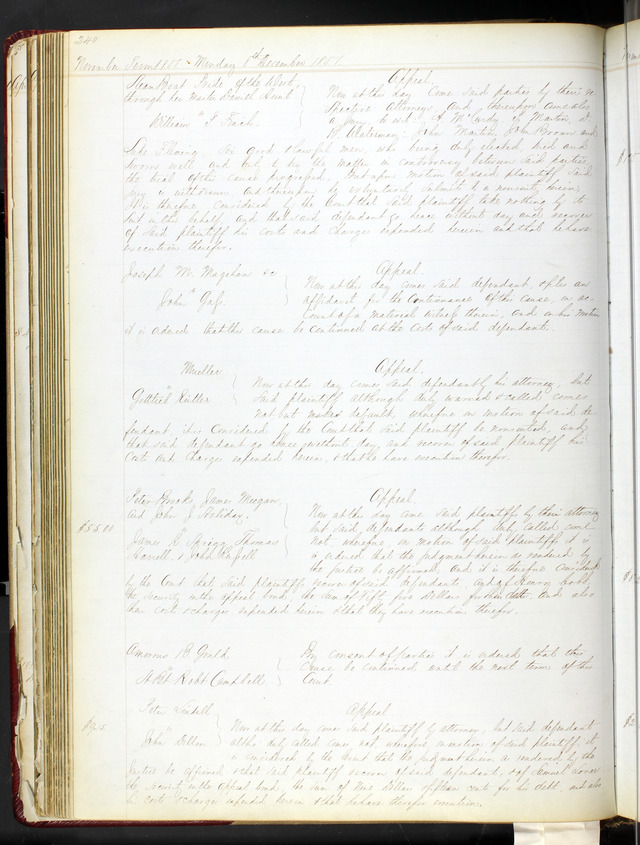 240
November Term 1851 Monday 1st December 1851.
Steam Boat Pride of the West Appeal.
through her Master Daniel
vs Now at this day come said parties by their re
William F. spective Attorneys and thereupon comes also
a Jury to wit, Martin,
John Martin, Brown and
good & lawful men, who being duly elected tried and
sworn well and truly to try the matter in controversy between said parties,
the trial of the cause progressed. Whereupon motion of said plaintiff said
jury is withdrawn and thereupon he voluntarily submits to a nonsuit herein,
It is therefore considered by the Court that said plaintiff take nothing by its
suit in this behalf, and that said defendant go hence without day and recover
of said plaintiff his costs and charges expended herein and that he have
execution therefor.
Joseph W. Appeal.
vs Now at this day comes said defendant, & files an
John affidavit for the continuance of this cause, on ac
count of a material witness therein, and on his motion
it is ordered that this cause be continued at the costs of said defendant.
Mueller Appeal.
vs Now at this day comes said defendant by his attorney, but
Gottlieb said plaintiff although duly warned & called comes
not but makes default, wherefore on motion of said de
fendant, it is considered by the Court that said plaintiff be nonsuited, and
that said defendant go hence without day, and recover of said plaintiff his
costs and charges expended herein & that he have execution therefor.
Peter Brooks, James Appeal.
and John J. Holiday. Now at this day come said plaintiffs by their attorney
$55.00 vs but said defendants although duly called come
James Thomas not wherefore on motion of said plaintiffs it is
& John is ordered that the judgment herein as rendered by
the justice be affirmed, and it is therefore considered
by the Court that said plaintiffs recover of said defendants, and of Henry
the security in the appeal bond, the sum of Fifty five Dollars for their debt, and also
their costs & charges expended herein & that they have execution therefor.
B. Gould By consent of parties it is ordered that this
vs cause be continued until the next term of this
Robt Campbell Court
Peter Lindell Appeal
vs Now at this day comes said plaintiff by attorney, but said defendant
John Dillon altho duly called comes not, wherefore on motion of said plaintiff, it
is considered by the Court that the judgment herein as rendered by the
Justice be affirmed & that said plaintiff recover of said defendant, & of Samuel
the security in the appeal bond, the sum of Nine Dollars fifteen cents for his debt, and also
his costs & charges expended herein & that he have therefor execution.